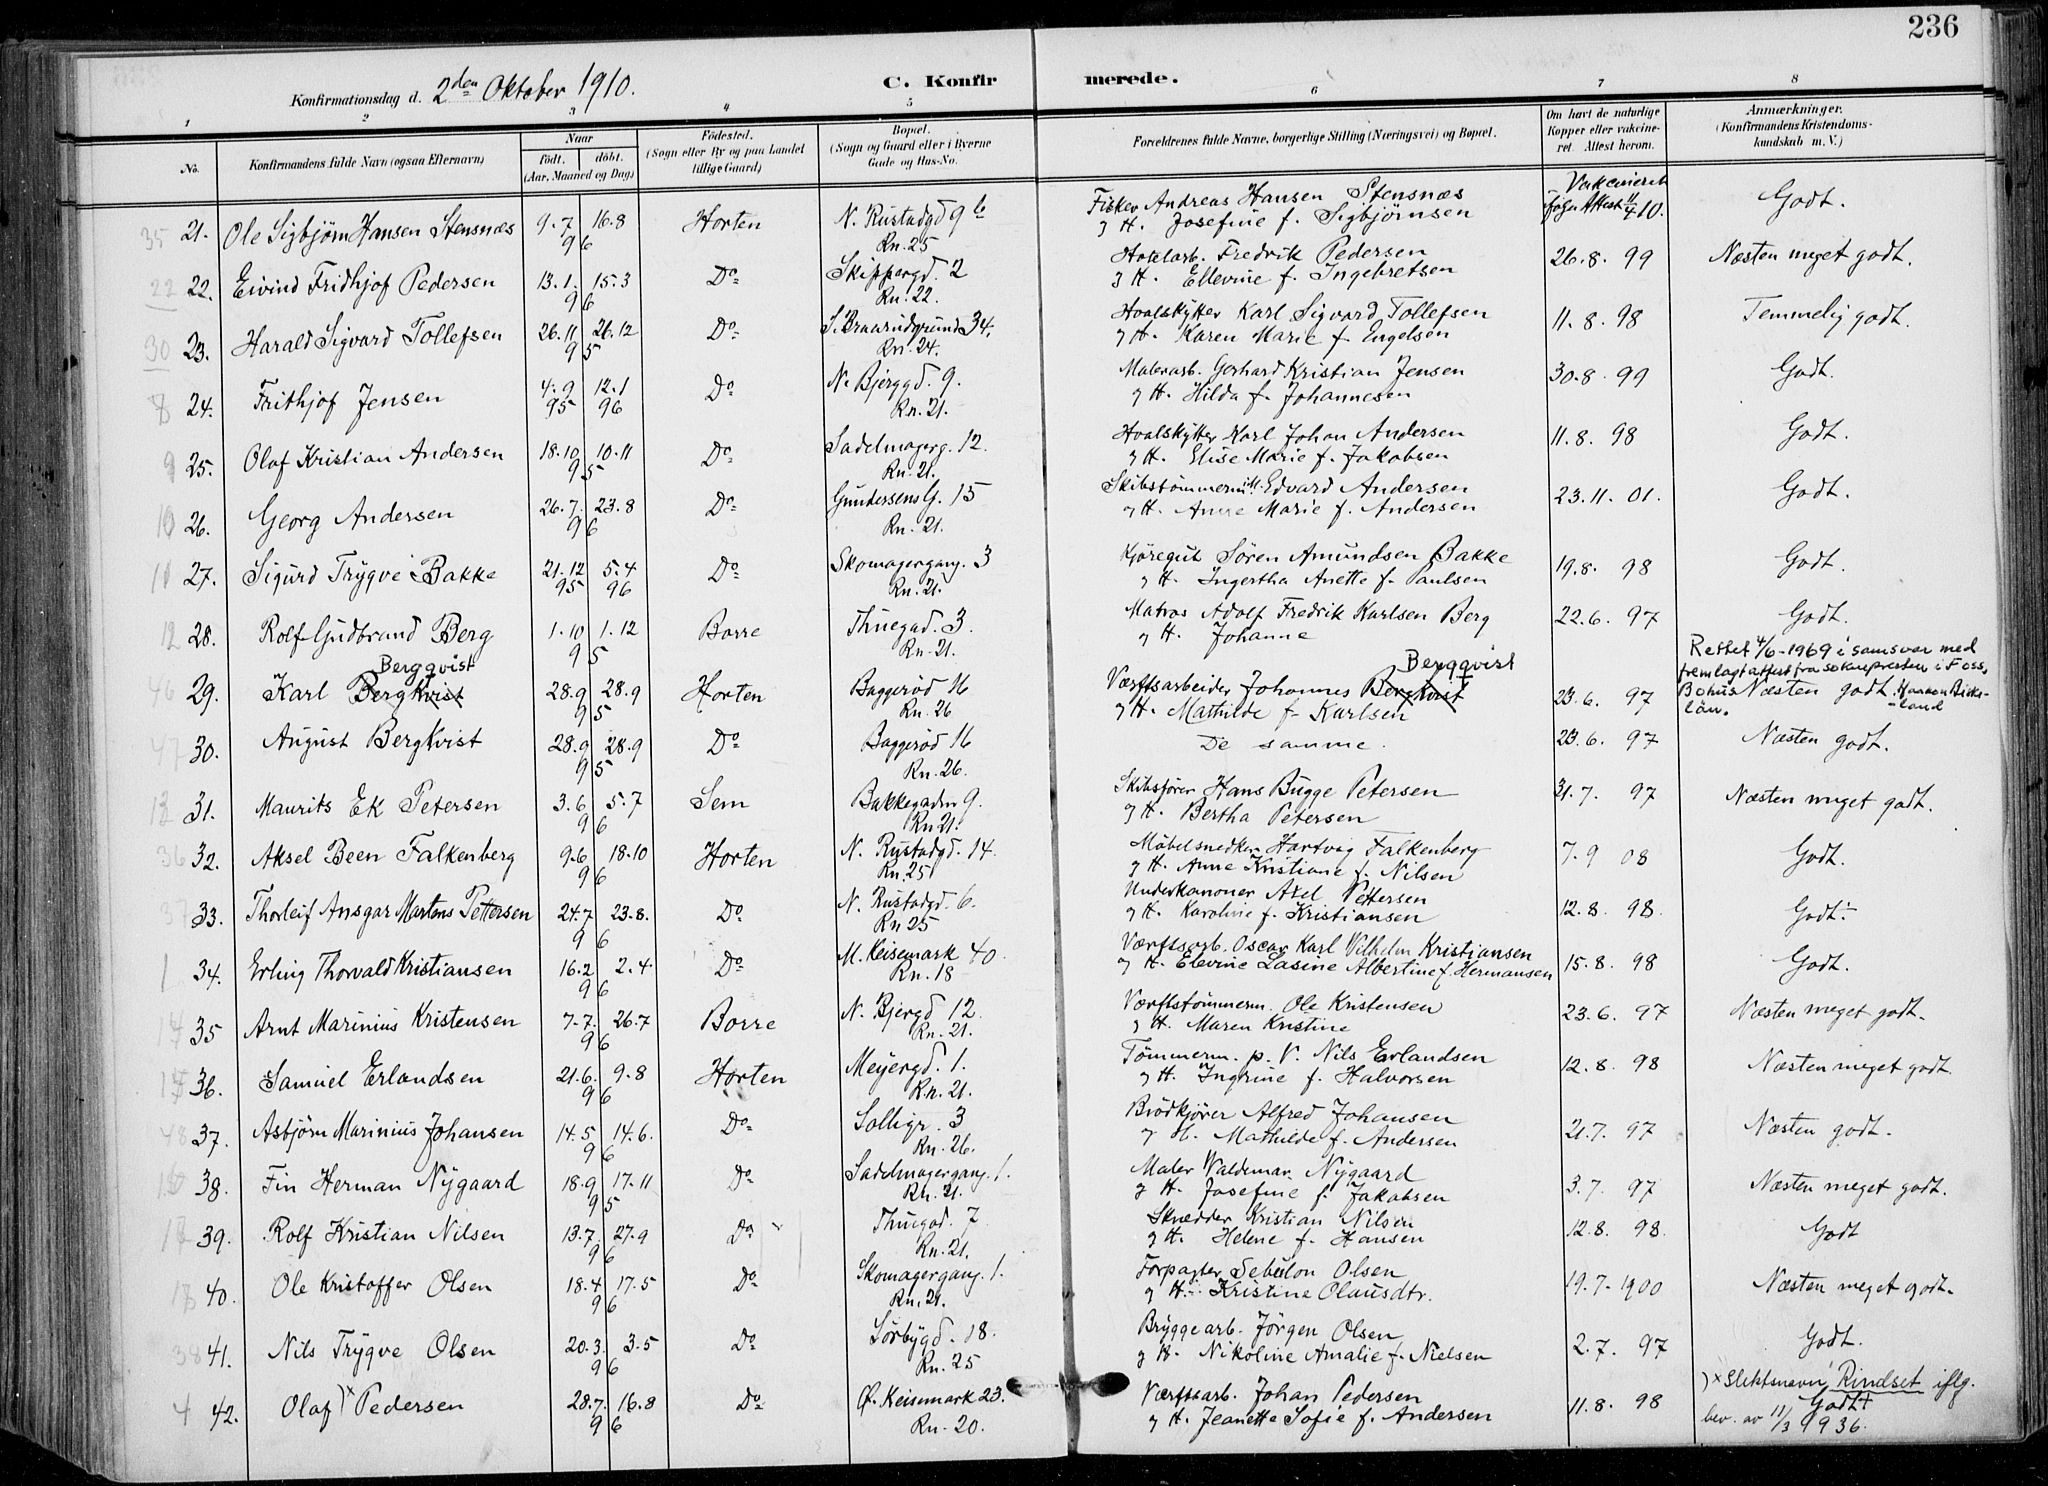 236
Konfirmationsdag d. 2den Oktober 1910.
C. Konfirmerede.
1 2 3 4 5 6 7 8
No. Konfirmandens fulde Navn (ogsaa Efternavn) Naar født. døbt. (Aar, Maaned og Dag) Fødested. (Sogn eller By og paa Landet tillige Gaard) Bopæl. (Sogn og Gaard eller i Byerne Gade og Hus-No. Forældrenes fulde Navne, borgerlige Stilling (Næringsvei) og Bopæl. Om havt de naturlige Kopper eller vakcineret. Attest herom. Anmærkninger. (Konfirmandens Kristendomskundskab m. V.)
35 21. Ole Sigbjørn Hansen Stensnæs 9.7 16.8 96 Horten N. Rustadgd 9 b Rn. 25 Fisker Andreas Hansen Stensnæs
g H. Josefine f. Sigbjørnsen Vakcineret ifølge Attest 11/4 10. Godt.
22 22. Eivind Fridhjof Pedersen 13.1. 15.3 96 Do Skippergd. 2 Rn. 22. Hvalarb. Fredrik Pedersen
g H. Ellevine f. Ingebretsen 26.8. 99 Næsten meget godt.
30 23. Harald Sigvard Tollefsen 26.11 26.12 95 Do S. Braarudgrund 34. Rn. 24. Hvalskytter Karl Sigvard Tollefsen
g H. Karen Marie f. Engelsen 11.8. 98 Temmelig godt.
8 24. Frithjof Jensen 4.9 95 12.1 96 Do N. Bjerggd. 9. Rn. 21. Malerarb. Gerhard Kristian Jensen
g H. Hilda f. Johannesen 30.8. 99 Godt.
9 25. Olaf Kristian Andersen 18.10 10.11 95 Do Sadelmagerg. 12. Rn. 21. Hvalskytter Karl Johan Andersen
g H. Elise Marie f. Jakobsen 11.8. 98 Godt.
10 26. Georg Andersen 26.7. 23.8 96 Do Gundersens G. 15 Rn. 21. Skibstømmerm. Edvard Andersen
g H. Anne Marie f. Andersen 23.11. 01. Godt.
11 27. Sigurd Trygve Bakke 21.12 95 5.4 96 Do Skomagergang. 3 Rn. 21. Kjøregut Søren Amundsen Bakke
g H. Ingertha Anette f. Paulsen 19.8. 98 Godt.
12 28. Rolf Gudbrand Berg 1.10 1.12 95 Borre Thuegad. 3. Rn. 21. Matros Adolf Fredrik Karlsen Berg
g H. Johanne 22.6. 97 Godt.
Rettet 4/6-1969 i samsvar med fremlagt attest fra soknepresten i Foss, Bohus län.
46 29. Karl Bergkvist Bergqvist 28.9 28.9 95 Horten Baggerød 16 Rn. 26 Værftsarbeider Johannes Bergkvist Bergqvist
g H. Mathilde f. Karlsen 23.6. 97 Næsten godt.
47 30. August Bergkvist 28.9 28.9 95 Do Baggerød 16 Rn. 26. De samme. 23.6. 97 Næsten godt.
13 31. Maurits Ek Petersen 3.6 5.7 96 Sem Bakkegaden 9. Rn 21. Skibsfører Hans Bugge Petersen
g H. Bertha Petersen 31.7. 97 Næsten meget godt.
36 32. Aksel Been Falkenberg 9.6 18.10 96 Horten N. Rustadgd. 14. Rn. 25 Møbelsnedker Hartvig Falkenberg
g H. Anne Kristiane f. Nilsen 7.9 08 Godt.
37 33. Thorleif Ansgar Martens Pettersen 24.7 23.8. 96 Do N. Rustadgd. 6. Rn 25 Underkanoner Axel Pettersen
g H. Karoline f. Kristiansen 12.8. 98. Godt.
1 34. Erling Thorvald Kristiansen 16.2 2.4 96 Do M. Keisemark 40. Rn. 18 Værftsarb. Oscar Karl Vilhelm Kristiansen
g H. Elevine Lasine Albertine f. Hermansen 15.8. 98 Godt.
14 35 Arnt Marinius Kristensen 7.7. 26.7 96 Borre N. Bjergd 12. Rn. 21. Værftstømmerm. Ole Kristensen
g H. Maren Kristine 23.6. 97 Næsten meget godt.
15 36. Samuel Erlandsen 21.6. 9.8 96 Horten Meyergd. 1. Rn. 21. Tømmerm. p. V. Nils Erlandsen
g H. Ingrine f. Halvorsen 12.8. 98 Næsten meget godt.
48 37. Asbjørn Marinius Johansen 14.5 14.6. 96 Do Solligr. 3 Rn. 26. Brødkjører Alfred Johansen
g H. Mathilde f. Andersen 21.7. 97 Næsten godt.
16 38. Fin Herman Nygaard 18.9 17.11 95 Do Sadelmagergang. 1. Rn. 21. Maler Waldemar Nygaard
g H. Josefine f. Jakobsen 3.7. 97 Næsten meget godt.
17 39. Rolf Kristian Nilsen 13.7. 27.9 96 Do Thuegad. 7 Rn. 21. Skrædder Kristian Nilsen
g H. Helene f. Hansen 12.8. 98. Godt
18 40. Ole Kristoffer Olsen 18.4 17.5 96 Do Skomagergang. 1. Rn. 21. Forpagter Sebulon Olsen
g H. Kristine Olausdtr. 19.7. 1900 Næsten meget godt.
38 41. Nils Trygve Olsen 20.3. 3.5 96 Do Sørbygd. 18. Rn. 25 Bryggearb. Jørgen Olsen
g H. Nikoline Amalie f. Nielsen 2.7. 97 Godt.
4 42. Olaf )x Pedersen 28.7. 16.8 96 Do Ø. Keisemark 23. Rn. 20. Værftsarb. Johan Pedersen
g H. Jeanette Sofie f. Andersen 11.8. 98 Godt
)x Slektsnavn Rindset iflg. bev. av 11/3 1936.